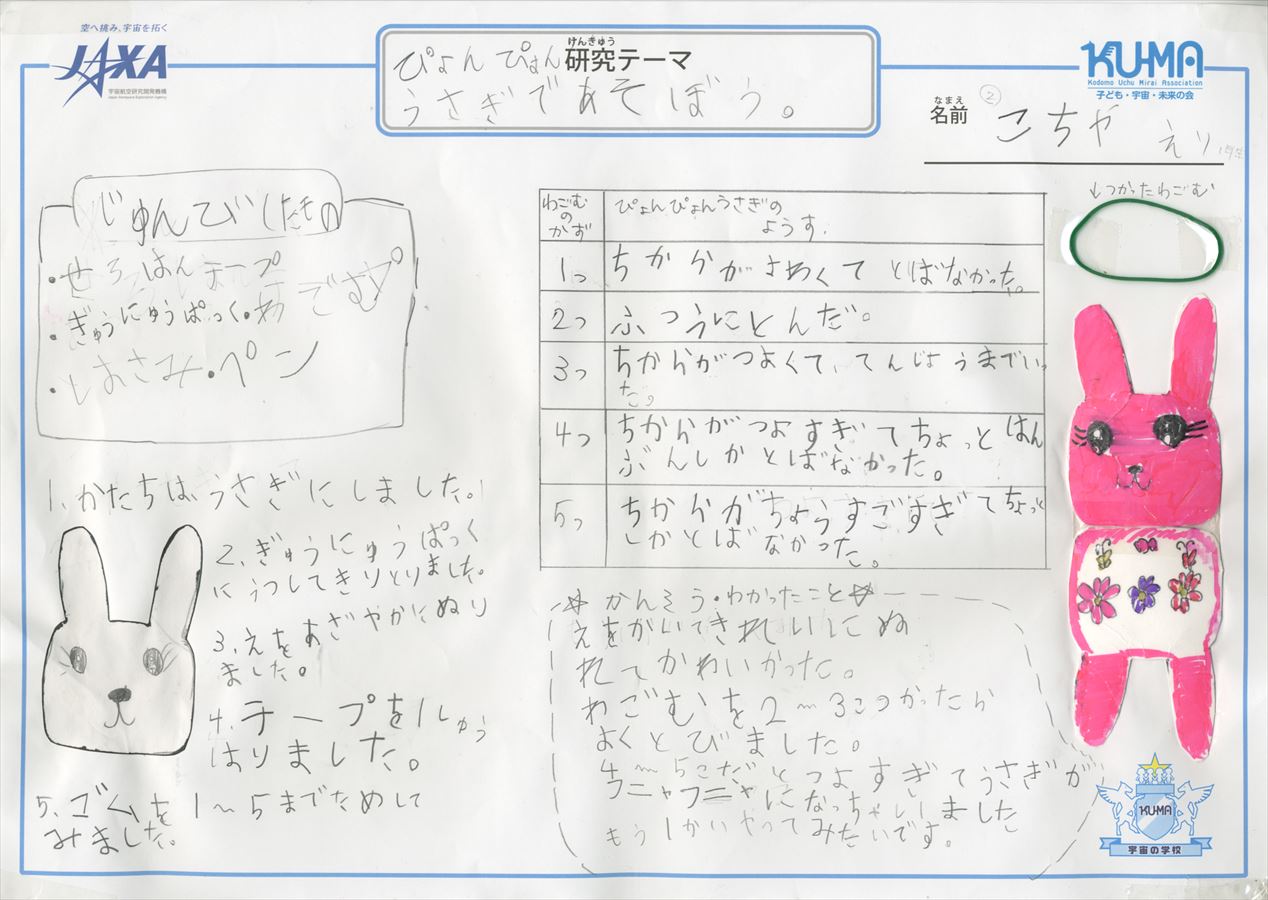 空へ挑み、宇宙を拓く
JAXA
宇宙航空研究開発機構
Japan Aerospace Exploration Agency
けんきゅう
研究テーマ
ぴょん ぴょん
うさぎであそぼう。
KUMA
Kodomo Uchu Mirai Association
子ども・宇宙・未来の会
なまえ
名前
②
こちや えり
じゅんびしたもの
・せろはんテープ
・ぎゅうにゅうぱっく・わごむ
・はさみ・ペン
1、かたちは、うさぎにしました。
2、ぎゅうにゅうぱっく
にうつしてきりとりました。
3、えをあざやかにぬり
ました。
4、テープを1しゅう
はりました。
5、ゴムを1〜5までためして
みました。
わごむ
の
かず
ぴょんぴょんうさぎの
ようす。
1つ
ちからがよわくて とばなかった。
2つ
ふつうにとんだ。
3つ
ちからがつよくて、てんじょうまでいっ
た。
4つ
ちからがつよすぎてちょっとはん
ぶんしかとばなかった。
5つ
ちからがちょうすごすぎてちょっと
しかとばなかった。
↓つかったわごむ
☆かんそう・わかったこと☆
えをかいてきれいにぬ
れてかわいかった。
わごむを2〜3こつかったら
よくとびました。
4〜5こだとつよすぎてうさぎが
フニャフニャになっちゃいました
もう1かいやってみたいです。
KUMA
宇宙の学校